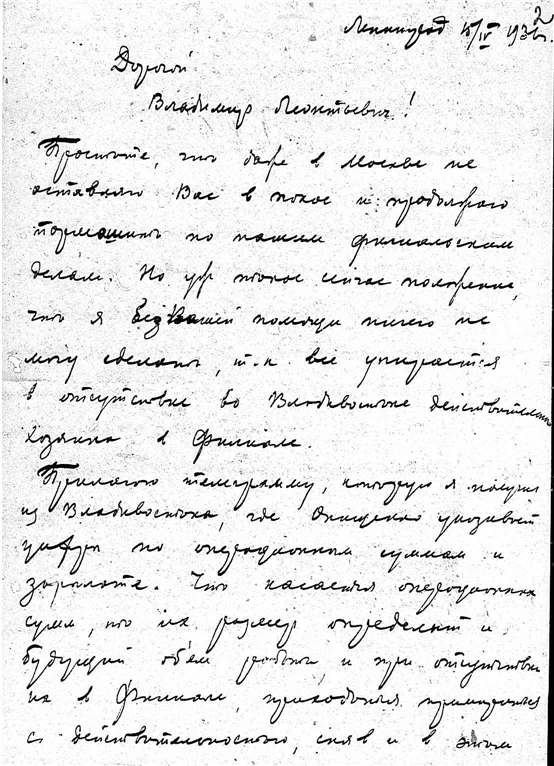 Ленинград 15/IV 1932 г.
2
Дорогой
Владимир Леонтьевич!
Простите, что даже в Москве не
оставляю Вас в покое и продолжаю
тормошить по нашим филиальским
делам. Но уж такое сейчас положение,
что я без Вашей помощи ничего не
могу сделать, т.к. всё упирается
в отсутствие во Владивостоке действительн
хозяина в Филиале.
Прилагаю телеграмму, которую я получил
из Владивостока, где Онищенко указывает
цифры по операционным суммам и
зарплате. Что касается операционных
сумм, то их размер определит и
будущий объём работы, и при отсутствии
их в Филиале, приходится примириться
с действительностью, сняв и в этом